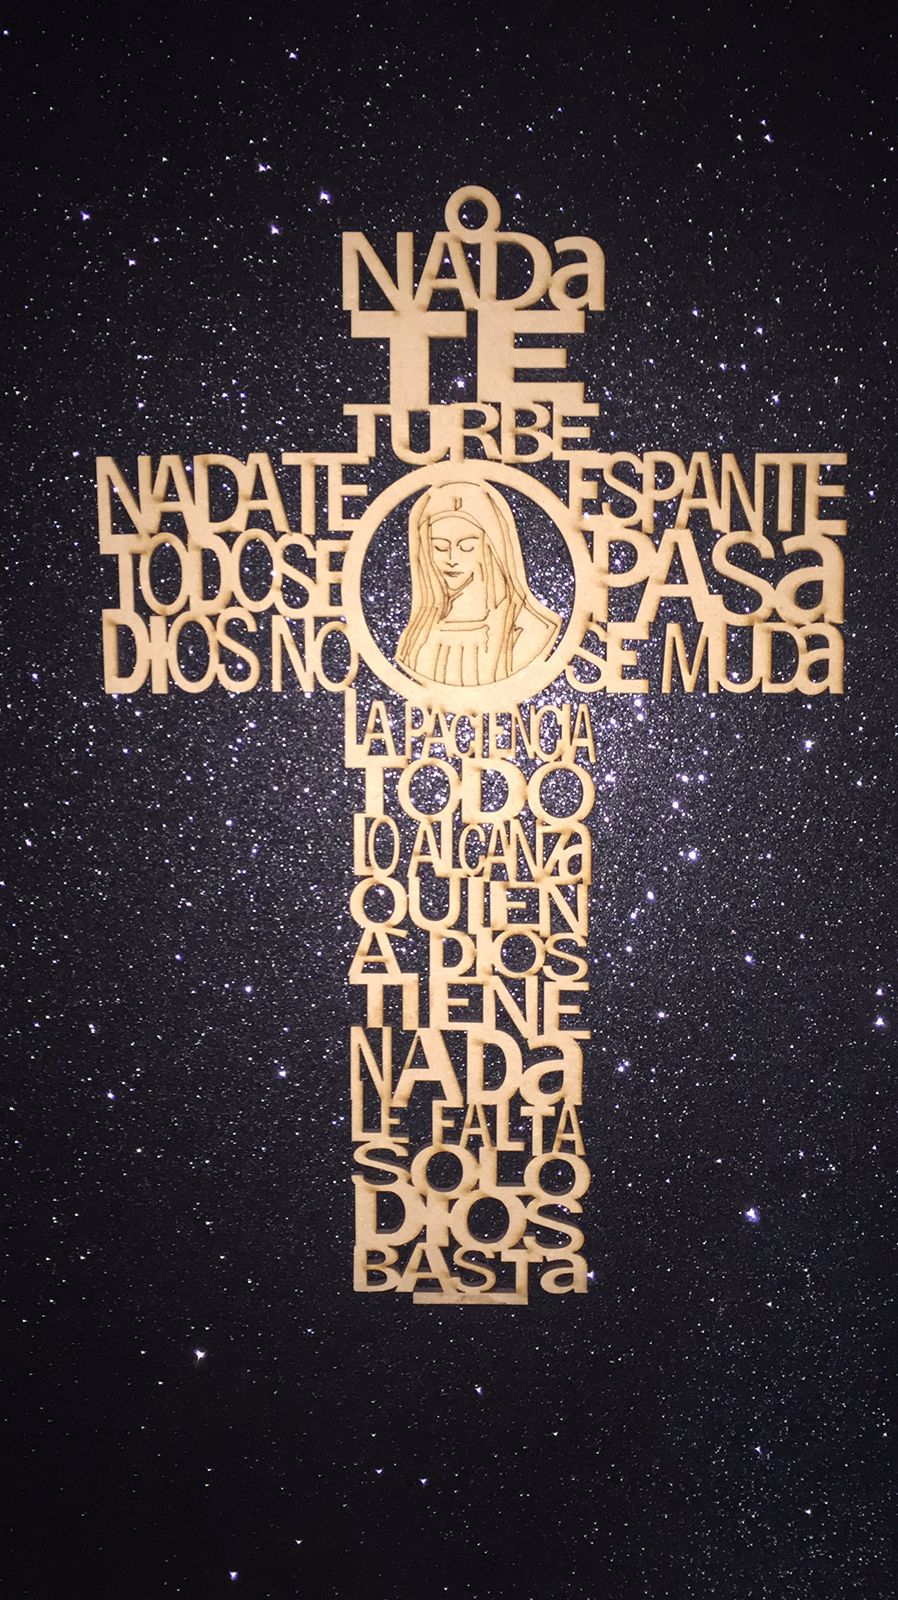 NADa
TE
TURBE
NADA TE ESPANTE
TODO SE PASa
DIOS NO SE MUDa
LA PACIENCIA
TODO
LO ALCANZa
QUIEN
A DIOS
TIENE
NADa
LE FALTA
SOLO
DIOS
BASTa